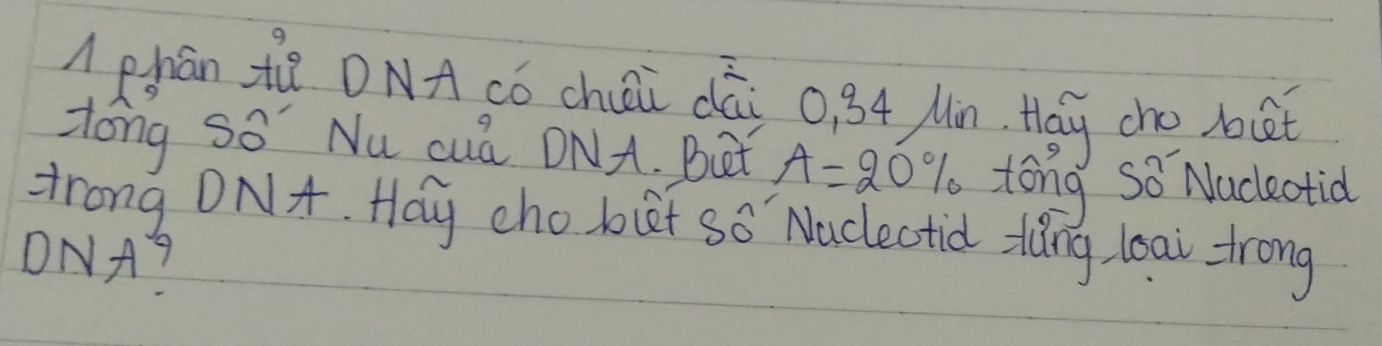 1 phân tử DNA có chiều dài 0,34 Mm. Hãy cho biết
tổng số Nu của DNA. Biết A=20% tổng số Nucleotid
trong DNA. Hãy cho biết số Nucleotid từng loại trong
DNA?